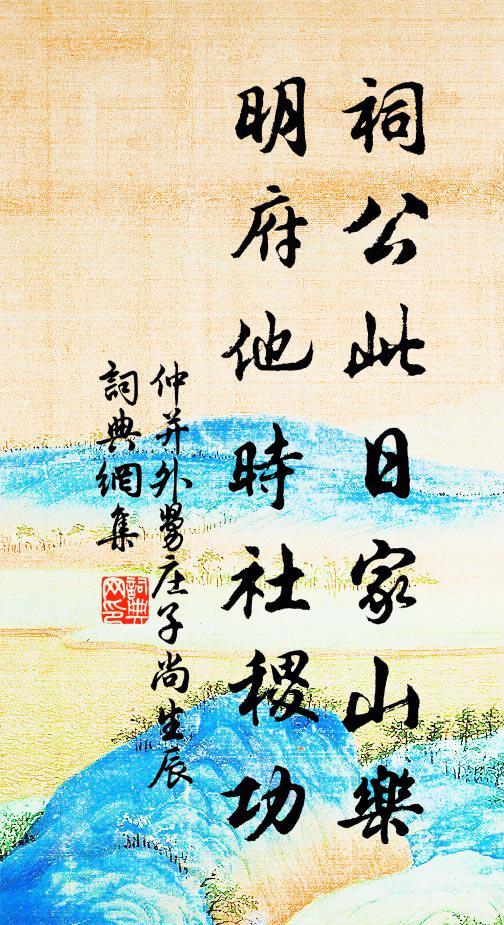 祠公此日家山樂
明府他時社稷功
仲并外舅庄子尚生辰
詞典網集
詞典網印